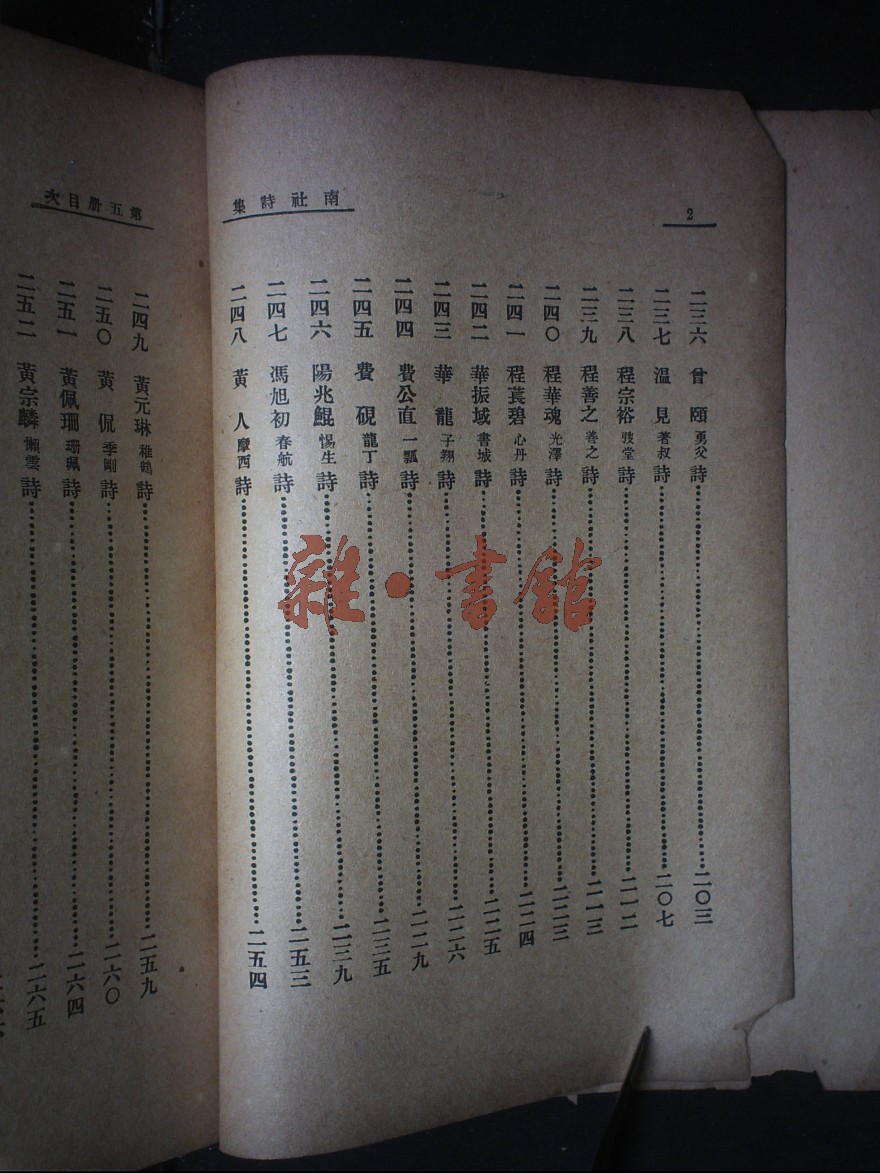 2
南社詩集
二三六 曾頤 勇父 詩 二〇三
二三七 溫見 著叔 詩 二〇七
二三八 程宗裕 詩 二一二
二三九 程善之 善之 詩 二一三
二四〇 程華魂 光澤 詩 二二三
二四一 程蓂碧 心丹 詩 二二四
二四二 華振域 書城 詩 二二五
二四三 華龍 子翔 詩 二二六
二四四 費公直 一瓢 詩 二二九
二四五 費硯 龍丁 詩 二三五
二四六 陽兆鯤 惕生 詩 二三九
二四七 馮旭初 春航 詩 二五三
二四八 黃人 摩西 詩 二五四
第五册目次
二四九 黃元琳 稚鶴 詩 二五九
二五〇 黃侃 季剛 詩 二六〇
二五一 黃佩珊 珊珮 詩 二六四
二五二 黃宗麟 懶雲 詩 二六五
雜·書館